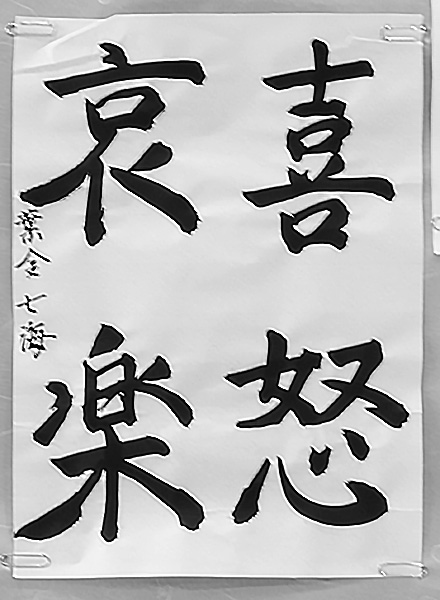 喜怒
哀楽
葉金七海